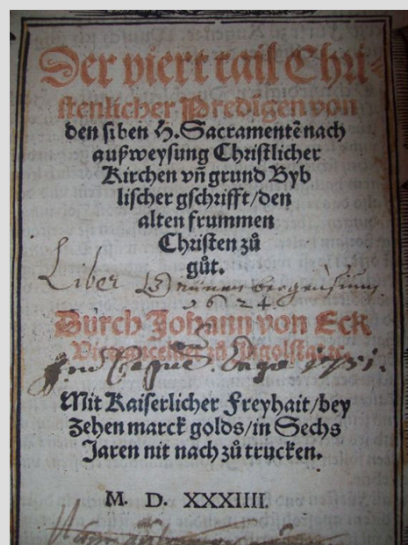 Der viert tail Chri-
stenlicher Predigen von
den siben H. Sacramentẽ nach
außweysung Christlicher
Kirchen vñ grund Byb
lischer gschrifft/den
alten frummen
Christen zů
gůt.
Liber
1624
Durch Johann von Eck
Vicecancellier zů Ingolstat ꝛc.
1751.
Mit Kaiserlicher Freyhait/bey
Zehen marck golds/in Sechs
Jaren nit nach zů trucken.
M. D. XXXIIII.